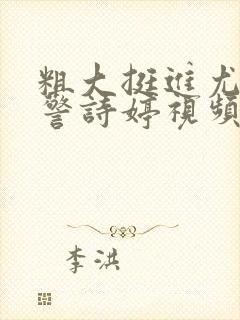 粗大挺進尤
警詩婷視頻
李洪